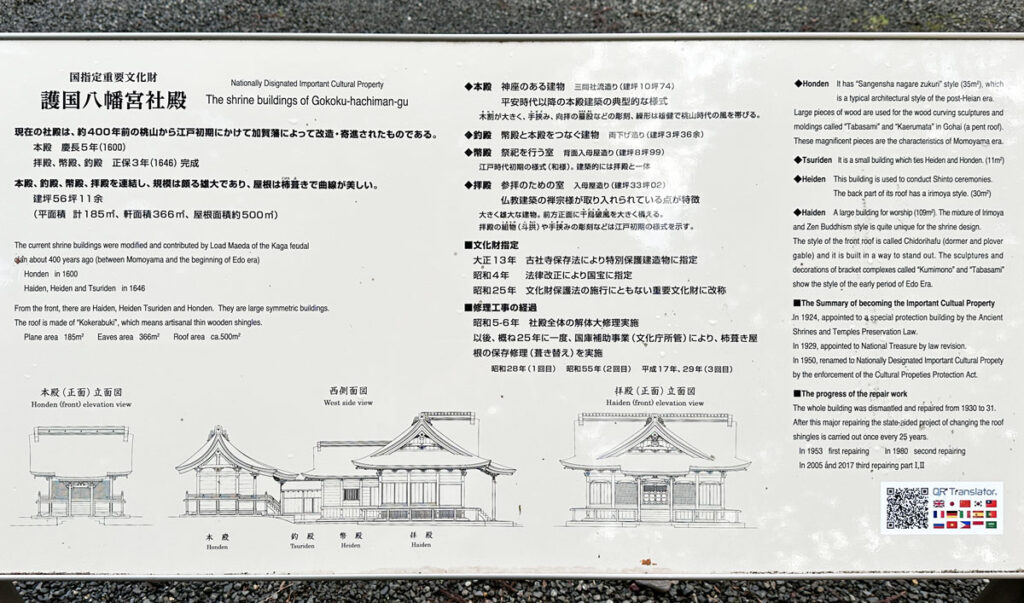 国指定重要文化財
護国八幡宮社殿
Nationally Disignated Important Cultural Property
The shrine buildings of Gokoku-hachiman-gu
現在の社殿は、約400年前の桃山から江戸初期にかけて加賀藩によって改造・寄進されたものである。
本殿　慶長5年(1600)
拝殿、幣殿、釣殿　正保3年(1646) 完成
本殿、釣殿、幣殿、拝殿を連結し、規模は頗る雄大であり、屋根は杮葺きで曲線が美しい。
建坪56坪11余
(平面積　計185㎡、軒面積366㎡、屋根面積約500㎡)
The current shrine buildings were modified and contributed by Load Maeda of the Kaga feudal
about 400 years ago (between Momoyama and the beginning of Edo era)
Honden in 1600
Haiden, Heiden and Tsuriden in 1646
From the front, there are Haiden, Heiden Tsuriden and Honden. They are large symmetric buildings.
The roof is made of "Kokerabuki", which means artisanal thin wooden shingles.
Plane area 185m² Eaves area 366m² Roof area ca.500m²
◆本殿　神座のある建物　三間社流造り(建坪10坪74)
平安時代以降の本殿建築の典型的な様式
木割が大きく、手挟み、向拝の蟇股などの彫刻、繰形は雄健で桃山時代の風を帯びる。
◆釣殿　幣殿と本殿をつなぐ建物　両下げ造り(建坪3坪36余)
◆幣殿　祭祀を行う室　背面入母屋造り(建坪8坪99)
江戸時代初期の様式(和様)。建築的には拝殿と一体
◆拝殿　参拝のための室　入母屋造り(建坪33坪02)
仏教建築の禅宗様が取り入れられている点が特徴
大きく雄大な建物。前方正面に千鳥破風を大きく構える。
拝殿の組物(斗拱)や手挟みの彫刻などは江戸初期の様式を示す。
■文化財指定
大正13年　古社寺保存法により特別保護建造物に指定
昭和4年　法律改正により国宝に指定
昭和25年　文化財保護法の施行にともない重要文化財に改称
■修理工事の経過
昭和5-6年　社殿全体の解体大修理実施
以後、概ね25年に一度、国庫補助事業(文化庁所管)により、杮葺き屋
根の保存修理(葺き替え)を実施
昭和28年(1回目)　昭和55年(2回目)　平成17年、29年(3回目)
◆Honden It has "Sangensha nagare zukuri" style (35m²), which
is a typical architectural style of the post-Heian era.
Large pieces of wood are used for the wood curving sculptures and
moldings called "Tabasami" and "Kaerumata" in Gohai (a pent roof).
These magnificent pieces are the characteristics of Momoyama era.
◆Tsuriden It is a small building which ties Heiden and Honden. (11m²)
◆Heiden This building is used to conduct Shinto ceremonies.
The back part of its roof has a irimoya style. (30m²)
◆Haiden A large building for worship (109m²). The mixture of Irimoya
and Zen Buddhism style is quite unique for the shrine design.
The style of the front roof is called Chidorihafu (dormer and plover
gable) and it is built in a way to stand out. The sculptures and
decorations of bracket complexes called "Kumimono" and "Tabasami"
show the style of the early period of Edo Era.
■The Summary of becoming the Important Cultual Property
In 1924, appointed to a special protection building by the Ancient
Shrines and Temples Preservation Law.
In 1929, appointed to National Treasure by law revision.
In 1950, renamed to Nationally Designated Important Cultural Propety
by the enforcement of the Cultural Propeties Protection Act.
■The progress of the repair work
The whole building was dismantled and repaired from 1930 to 31.
After this major repairing the state-sided project of changing the roof
shingles is carried out once every 25 years.
In 1953 first repairing In 1980 second repairing
In 2005 and 2017 third repairing part I,II
QR Translator.
本殿(正面)立面図
Honden (front) elevation view
西側面図
West side view
拝殿(正面)立面図
Haiden (front) elevation view
本殿
Honden
釣殿
Tsuriden
幣殿
Heiden
拝殿
Haiden